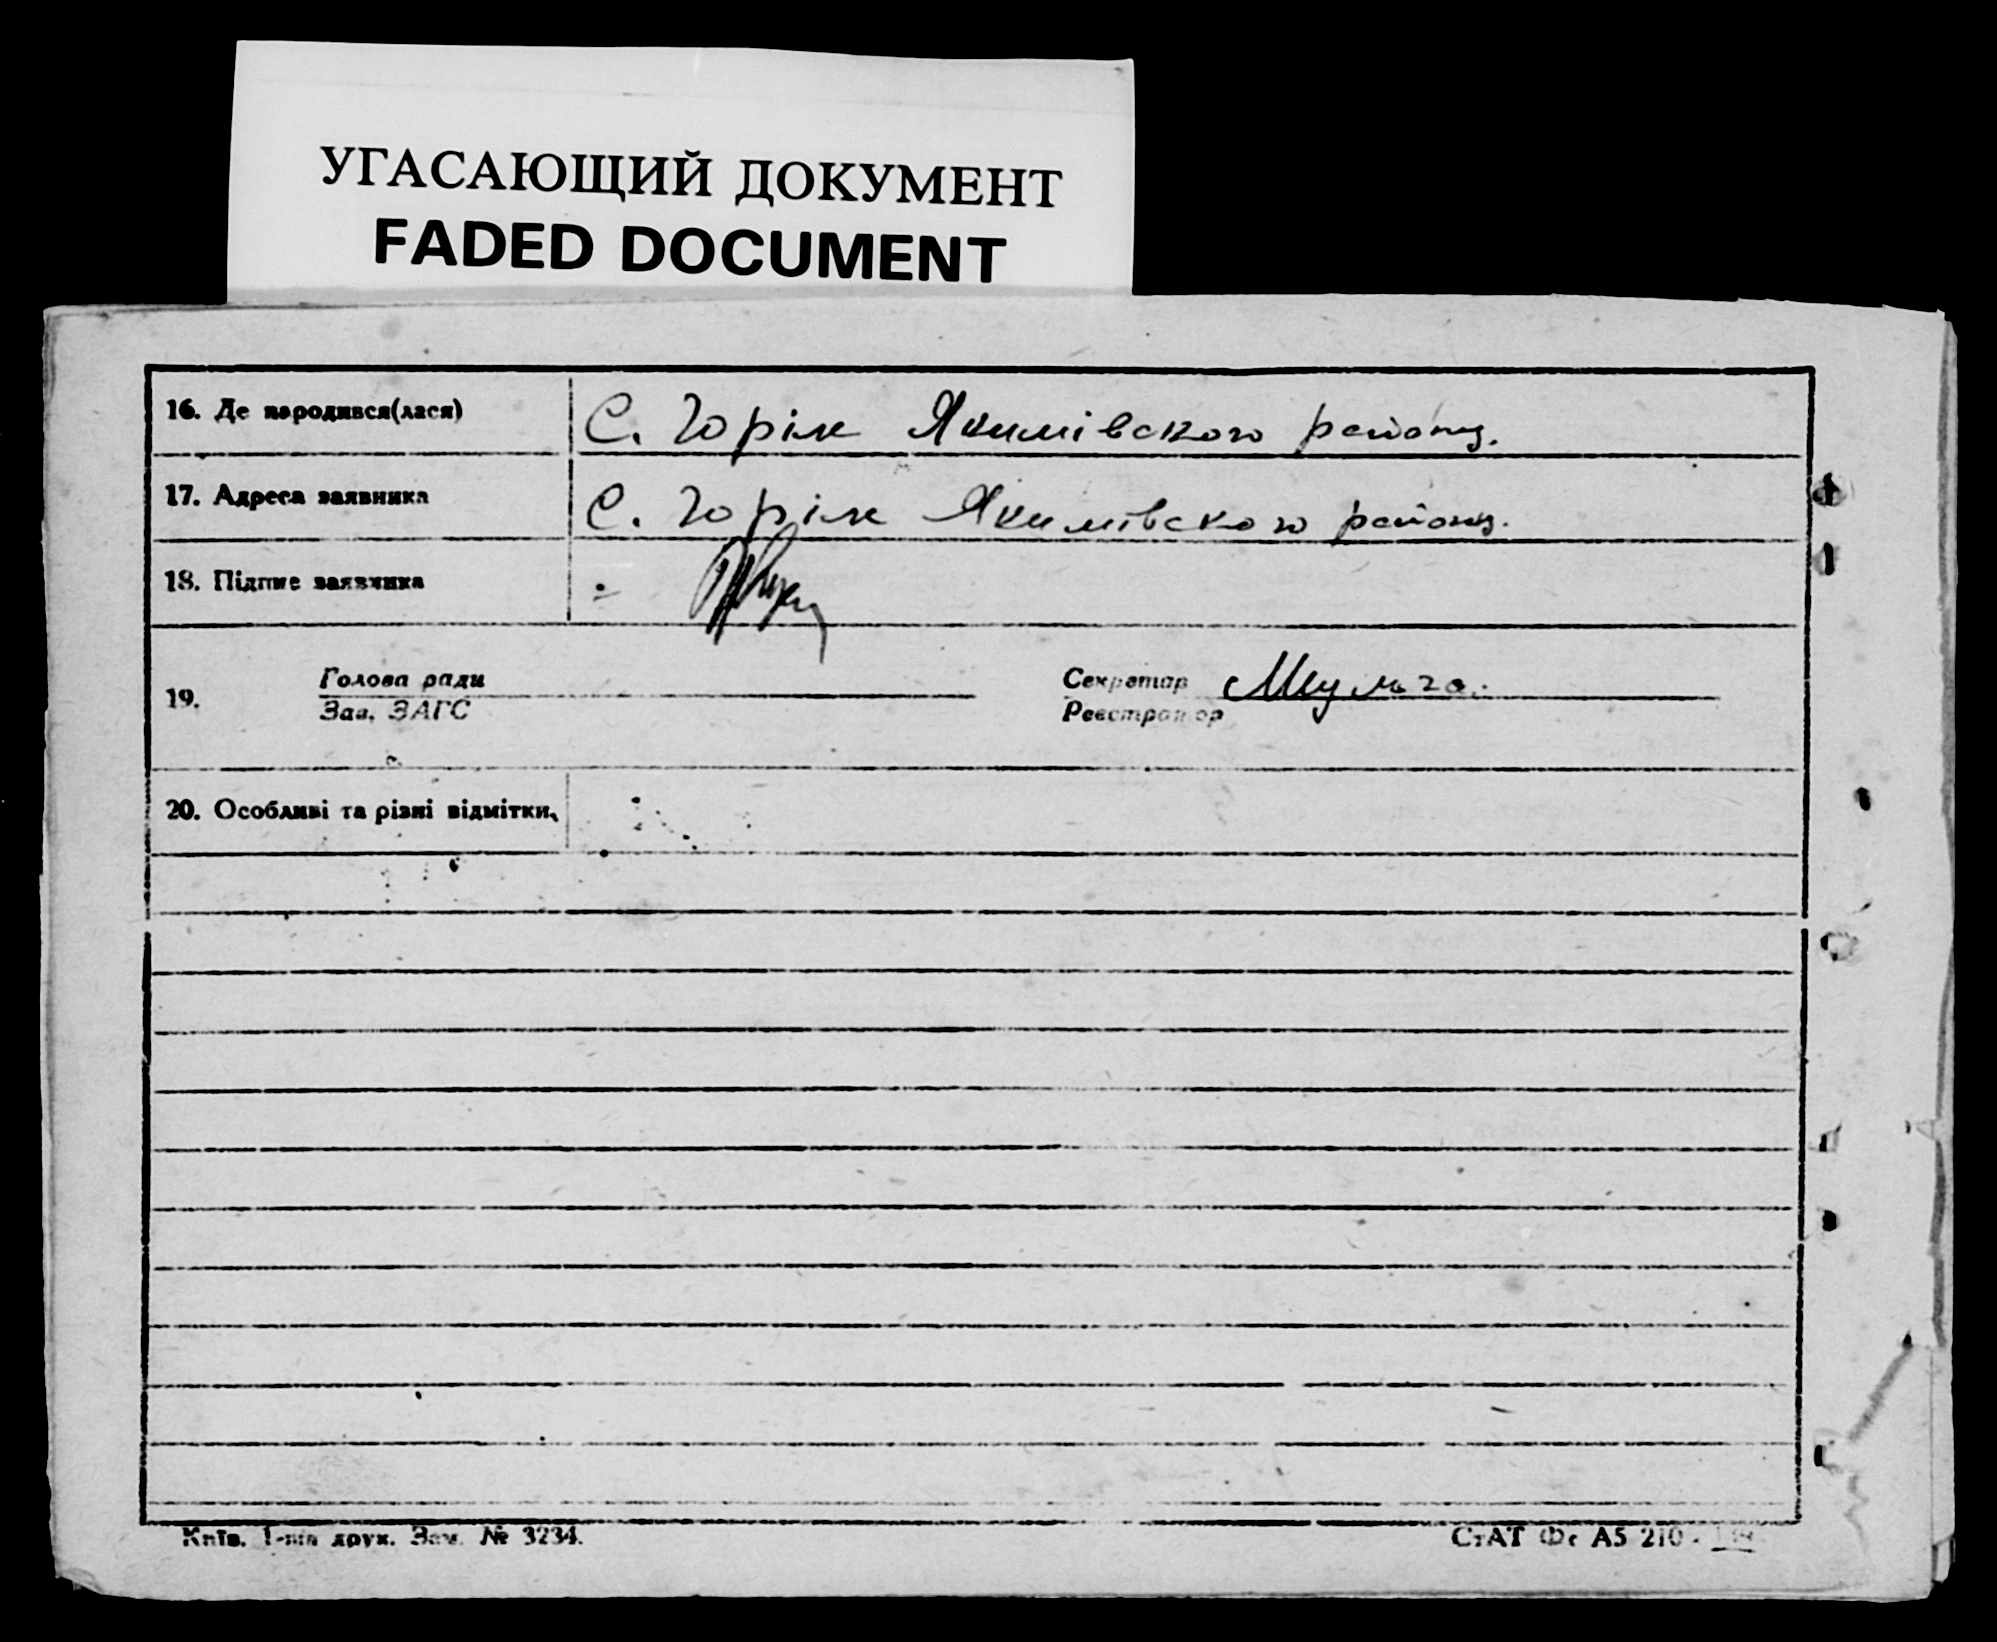 УГАСАЮЩИЙ ДОКУМЕНТ
FADED DOCUMENT
16. Де народився(лася) С. Горіле Якимівского району.
17. Адреса заявника С. Горіле Якимівского району.
18. Підпис заявника
19. Голова ради Секретар
Зав. ЗАГС Реєстратор
20. Особливі та різні відмітки.
Київ. 1-ша друк. Зам. № 3234. СтАТ Фс А5 210